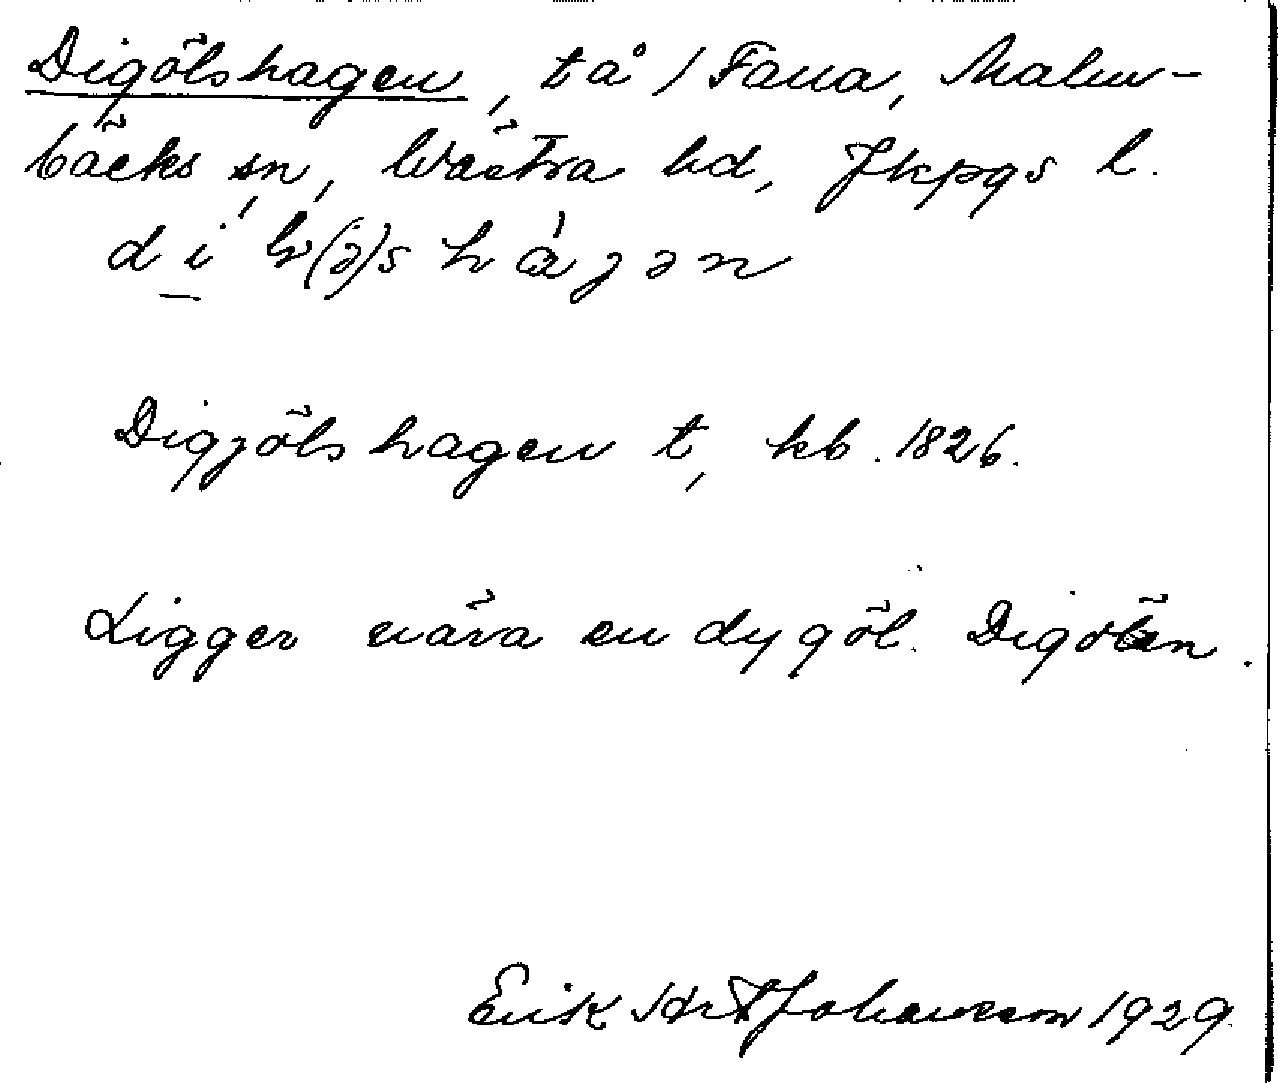 Digölshagen, tå / Fana, Malm-
bäcks sn, Västra hd, Jkpgs l.
Digjölshagen t, kb. 1826.
Ligger nära en dygöl. Digölen.
Erik Johansson 1929